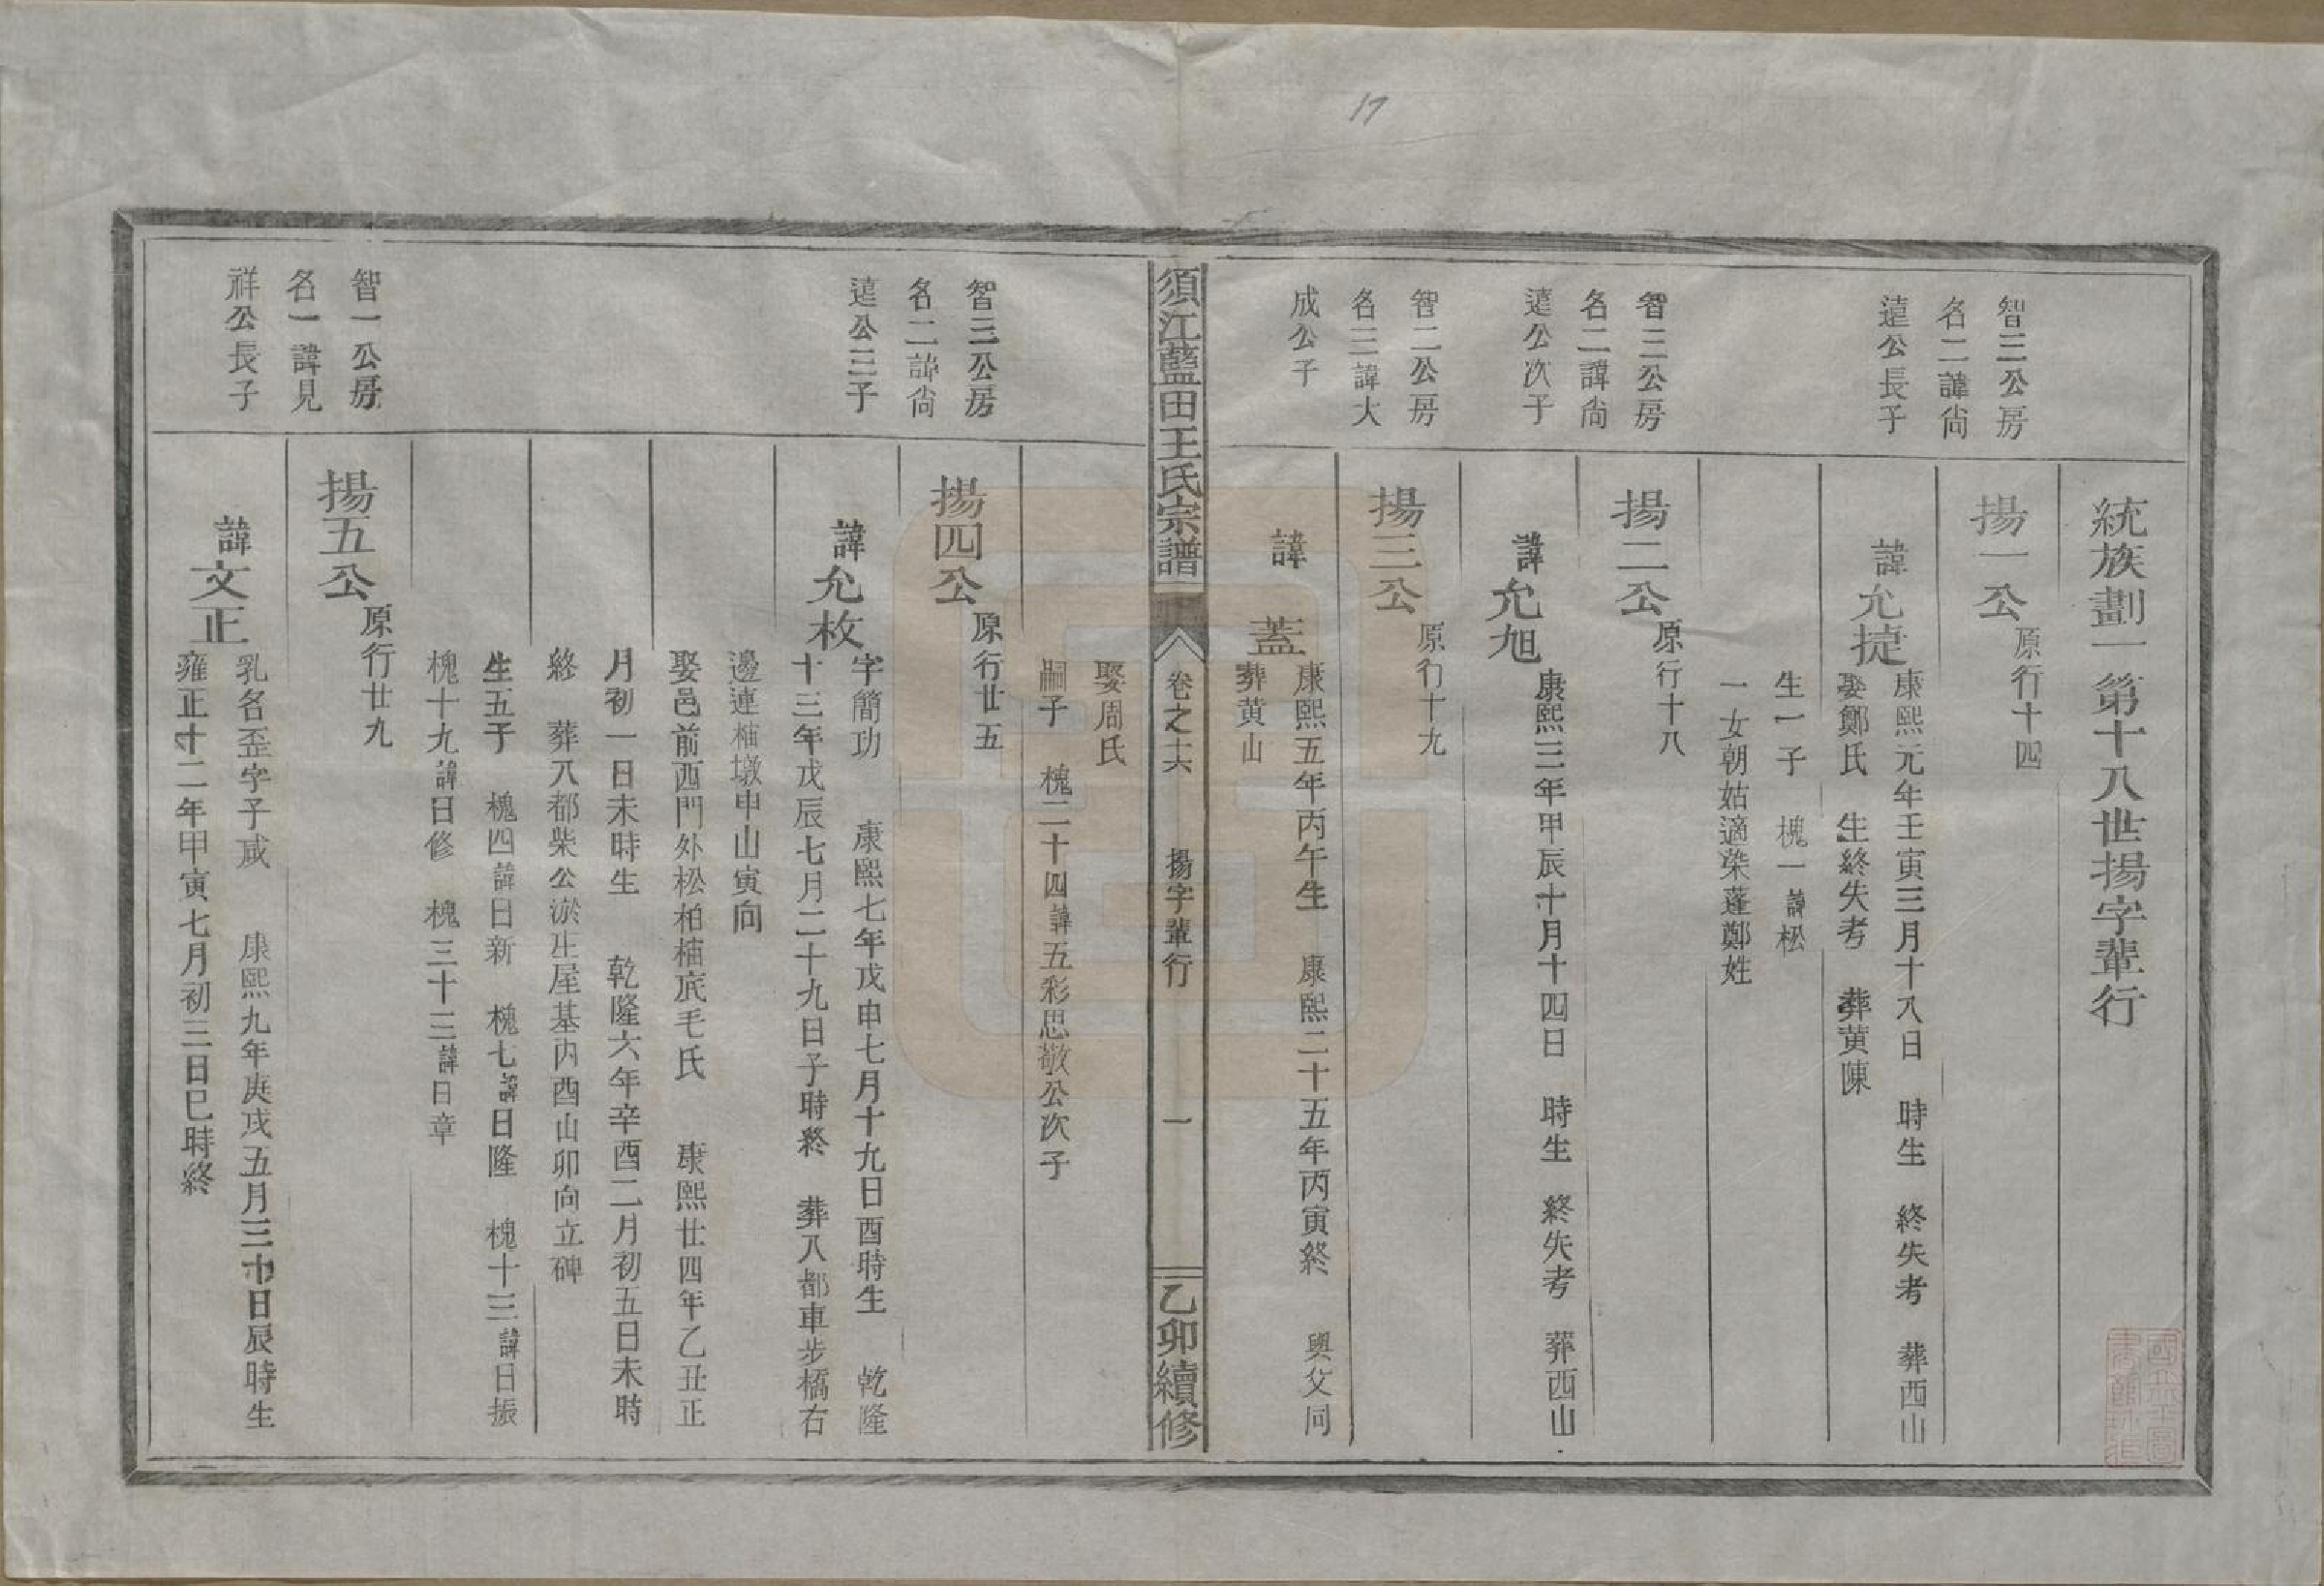 17
統族劃一第十八世揚字輩行
智三公房
名二諱尚
遠公長子
揚一公 原行十四
諱允㨗
康熙元年壬寅三月十八日 時生 終失考 葬西山
娶鄭氏 生終失考 葬黄陳
生一子 槐一諱松
一女朝姑適染蓬鄭姓
智三公房
名二諱尚
遠公次子
揚二公 原行十八
諱允旭
康熙三年甲辰十月十四日 時生 終失考 葬西山
智二公房
名三諱大
成公子
揚三公 原行十九
諱蓋
康熙五年丙午生 康熙二十五年丙寅終 與父同
葬黄山
須江藍田王氏宗譜
卷之十六 揚字輩行 一
乙卯續修
娶周氏
嗣子 槐二十四諱五彩思敬公次子
智三公房
名二諱尚
遠公三子
揚四公 原行廿五
諱允枚
字簡功 康熙七年戊申七月十九日酉時生 乾隆
十三年戊辰七月二十九日子時終 葬八都車步橋右
邊連楠墩申山寅向
娶邑前西門外松柏楠底毛氏 康熙廿四年乙丑正
月初一日未時生 乾隆六年辛酉二月初五日未時
終 葬八都柴公淤庄屋基内酉山卯向立碑
生五子 槐四諱日新 槐七諱日隆 槐十三諱日振
槐十九諱日修 槐三十三諱日章
智一公房
名一諱見
祥公長子
揚五公 原行廿九
諱文正
乳名歪字子咸 康熙九年庚戌五月三十日辰時生
雍正十二年甲寅七月初三日巳時終